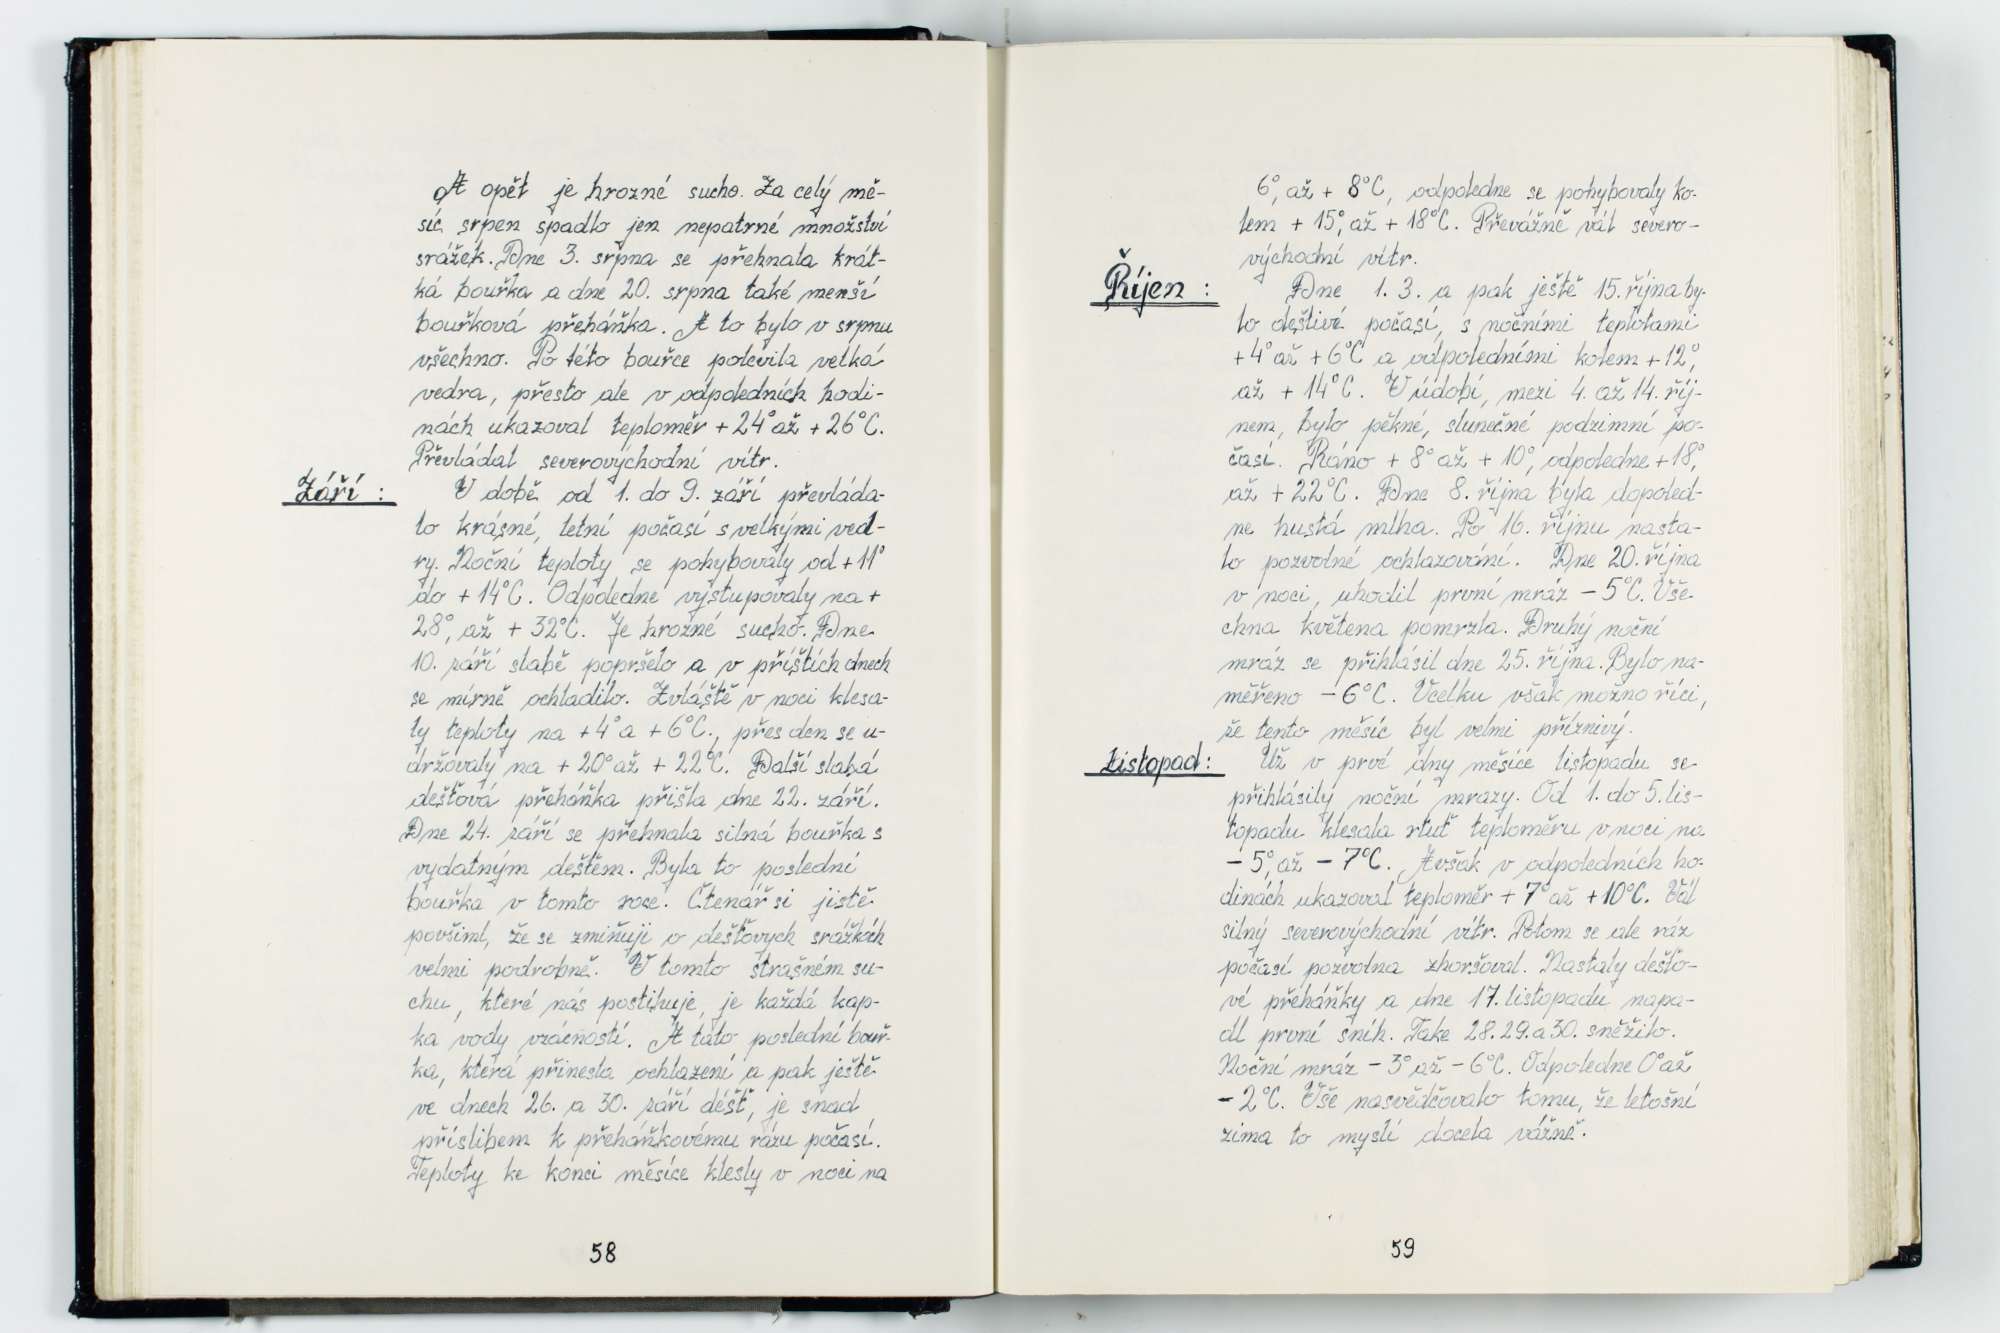 A opět je hrozné sucho. Za celý mě-
síc srpen spadlo jen nepatrné množství
srážek. Dne 3. srpna se přehnala krát-
ká bouřka a dne 20. srpna také menší
bouřková přeháňka. A to bylo v srpnu
všechno. Po této bouřce polevila velká
vedra, přesto ale v odpoledních hodi-
nách ukazoval teploměr +24° až +26°C.
Převládal severovýchodní vítr.
Září :
V době od 1. do 9. září převláda-
lo krásné, letní počasí s velkými ved-
ry. Noční teploty se pohybovaly od +11°
do +14°C. Odpoledne vystupovaly na +
28°, až +32°C. Je hrozné sucho. Dne
10. září slabě popršelo a v příštích dnech
se mírně ochladilo. Zvláště v noci klesa-
ly teploty na +4° a +6°C., přes den se u-
držovaly na +20° až +22°C. Další slabá
dešťová přeháňka přišla dne 22. září.
Dne 24. září se přehnala silná bouřka s
vydatným deštěm. Byla to poslední
bouřka v tomto roce. Čtenář si jistě
povšiml, že se zmiňuji o dešťových srážkách
velmi podrobně. V tomto strašném su-
chu, které nás postihuje, je každá kap-
ka vody vzácností. A tato poslední bouř-
ka, která přinesla ochlazení a pak ještě
ve dnech 26. a 30. září déšť, je snad
příslibem k přeháňkovému rázu počasí.
Teploty ke konci měsíce klesly v noci na
58
6°, až +8°C, odpoledne se pohybovaly ko-
lem +15°, až +18°C. Převážně vál severo-
východní vítr.
Říjen :
Dne 1. 3. a pak ještě 15. října by-
lo deštivé počasí, s nočními teplotami
+4° až +6°C a odpoledními kolem +12°,
až +14°C. V údobí, mezi 4. až 14. říj-
nem, bylo pěkné, slunečné podzimní po-
časí. Ráno +8° až +10°, odpoledne +18°,
až +22°C. Dne 8. října byla dopoled-
ne hustá mlha. Po 16. říjnu nasta-
lo pozvolné ochlazování. Dne 20. října
v noci, uhodil první mráz -5°C. Vše-
chna květena pomrzla. Druhý noční
mráz se přihlásil dne 25. října. Bylo na-
měřeno -6°C. Vcelku však možno říci,
že tento měsíc byl velmi příznivý.
Listopad :
Už v prvé dny měsíce listopadu se
přihlásily noční mrazy. Od 1. do 5. lis-
topadu klesala rtuť teploměru v noci na
-5°, až -7°C. Avšak v odpoledních ho-
dinách ukazoval teploměr +7° až +10°C. Vál
silný severovýchodní vítr. Potom se ale ráz
počasí pozvolna zhoršoval. Nastaly dešťo-
vé přeháňky a dne 17. listopadu napa-
dl první sníh. Take 28. 29. a 30. sněžilo.
Noční mráz -3° až -6°C. Odpoledne 0° až
-2°C. Vše nasvědčovalo tomu, že letošní
zima to myslí docela vážně.
59